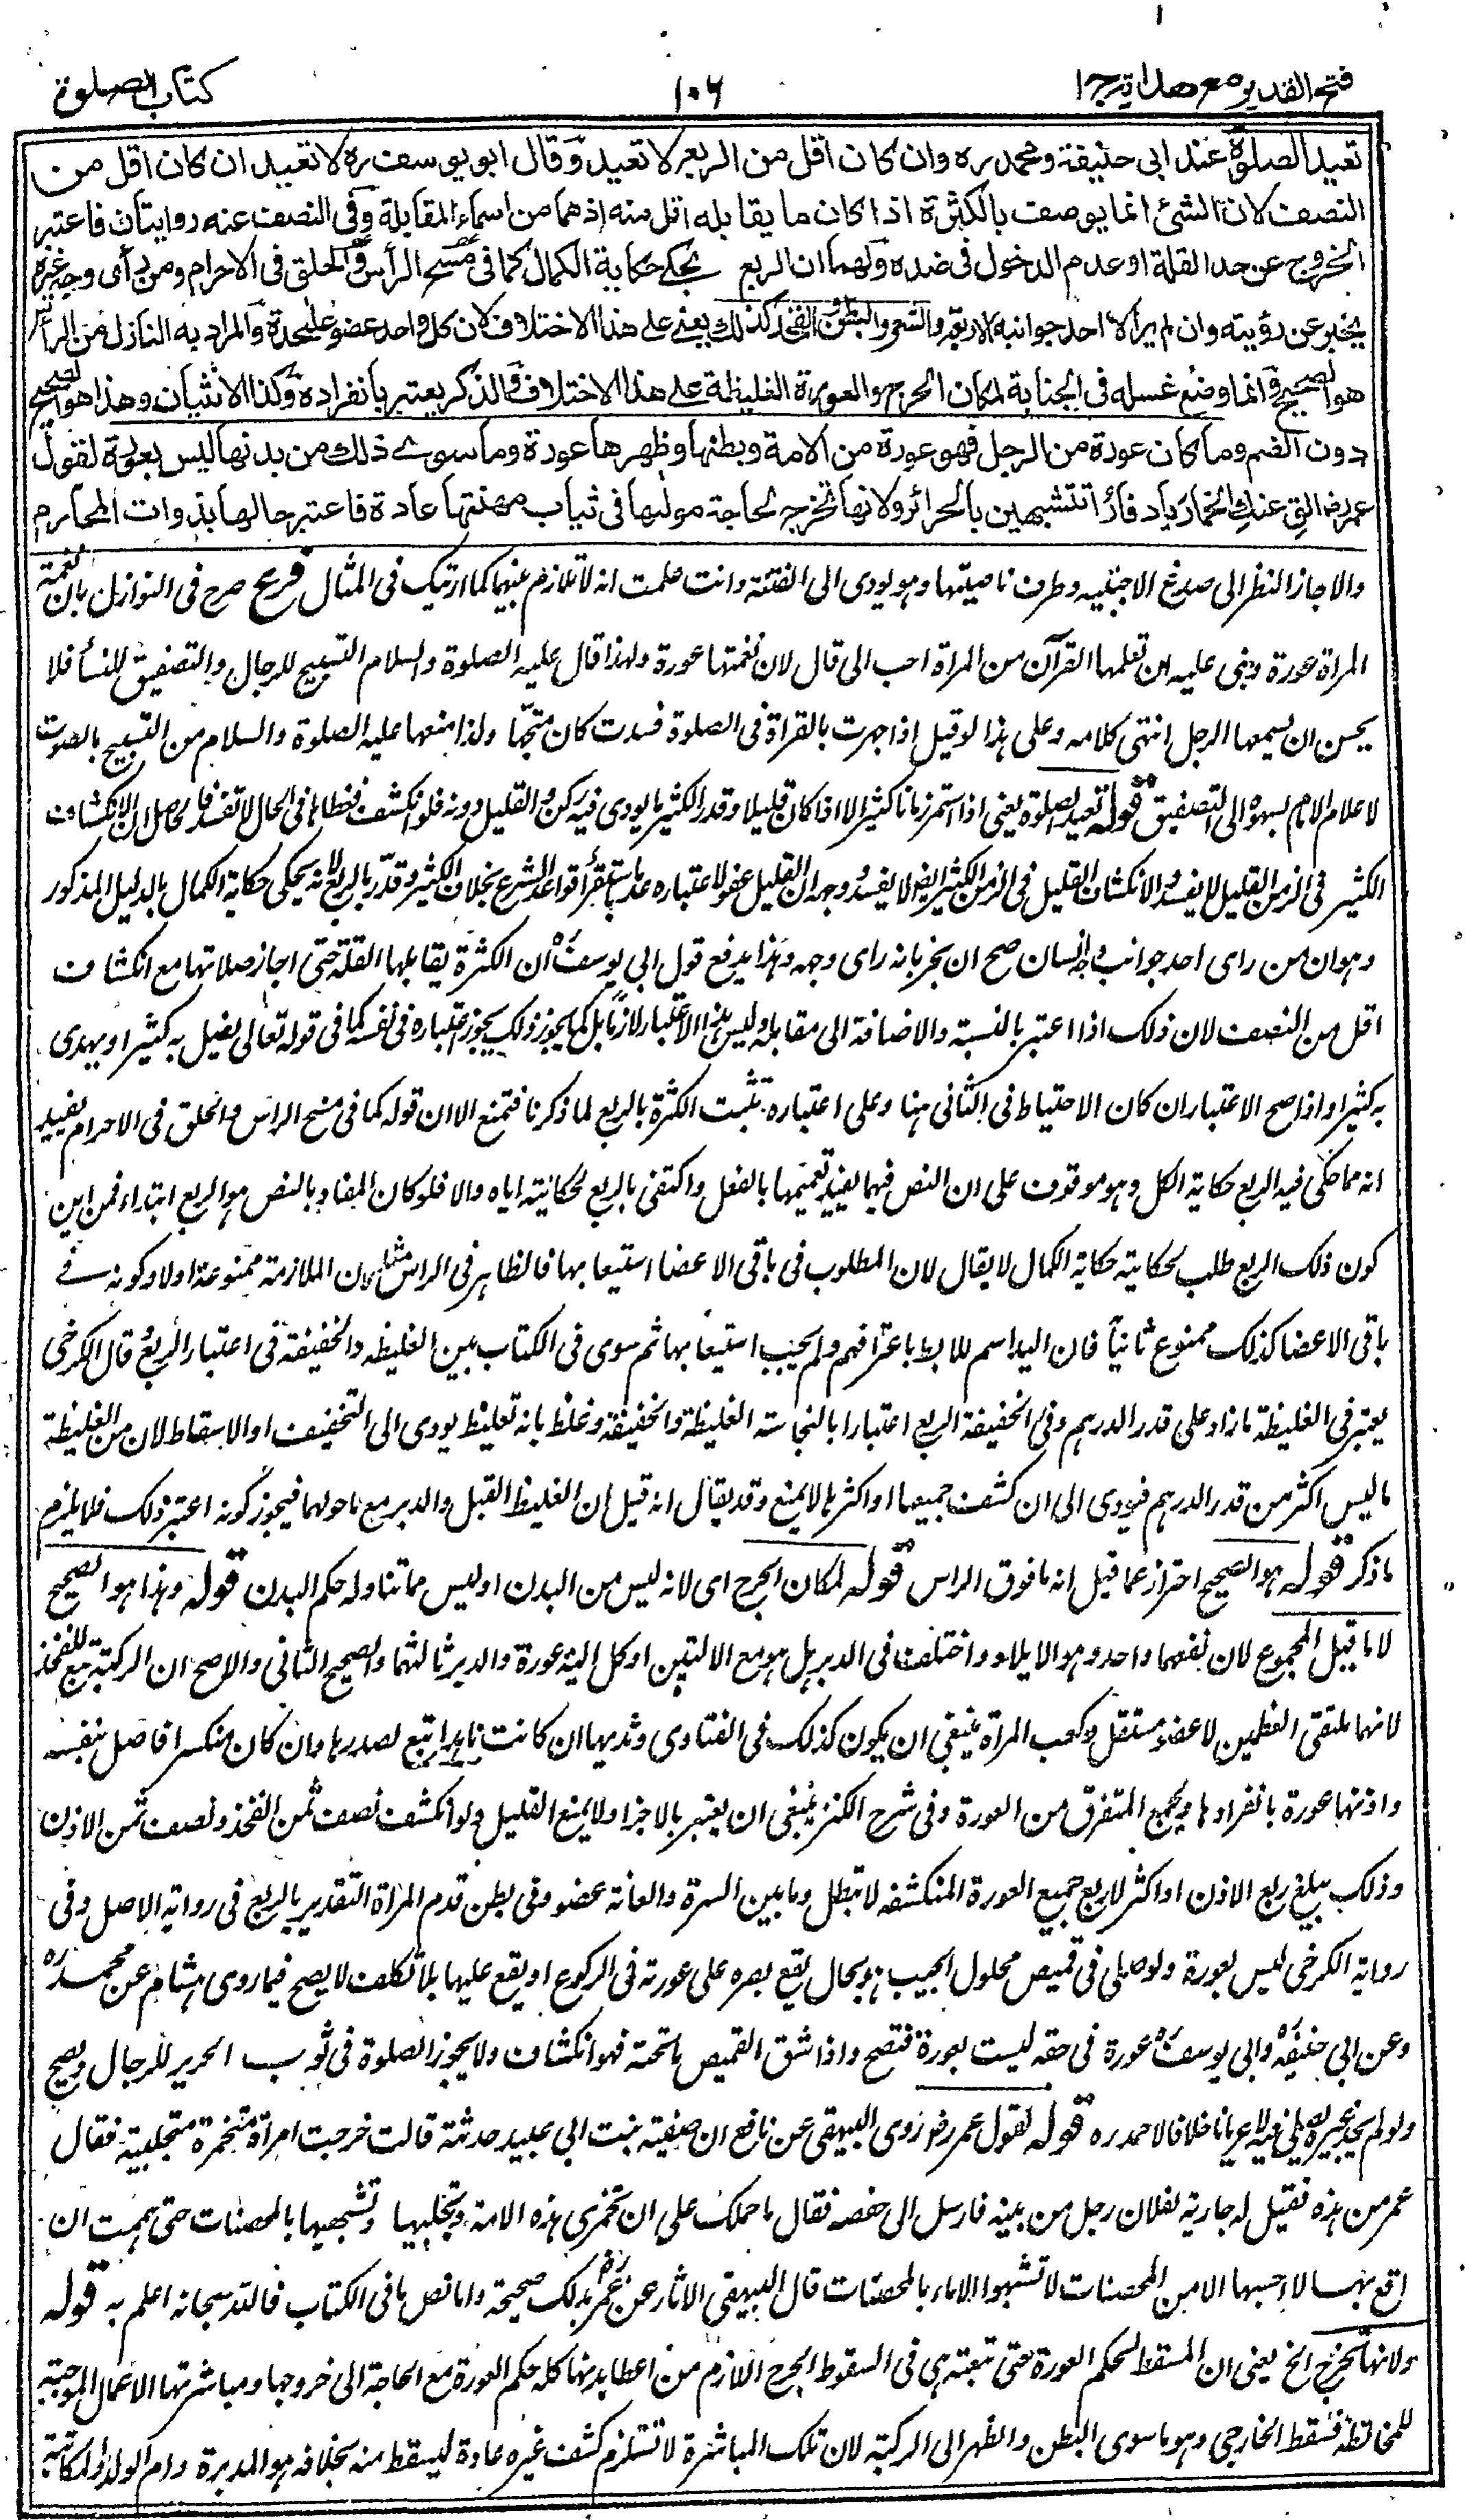 فتح القدير مع هداية ج ا
١٠٦
كتاب الصلوة
تعيد الصلوة عند ابى حنيفة ومحمد ره وان كان اقل من الربع لا تعيد وقال ابو يوسف ره لا تعيد ان كان اقل من
النصف لان الشئ انما يوصف بالكثرة اذا كان ما يقابله اقل منه اذهما من اسماء المقابلة وفى النصف عنه روايتان فاعتبر
الخروج عن حد القلة او عدم الدخول فى ضده ولهما ان الربع يحكى حكاية الكمال كما فى مسح الرأس والحلق فى الاحرام ومن رأى وجه غيره
يخبر عن رؤيته وان لم ير الا احد جوانبه الاربعة والشعر والبطن والفخذ كذلك يعنى على هذا الاختلاف لان كل واحد عضو عليحدة والمراد به النازل من الرأس
هو الصحيح وانما وضع غسله فى الجنابة لمكان الحرج والعورة الغليظة على هذا الاختلاف والذكر يعتبر بانفراده وكذا الانثيان وهذا هو الصحيح
دون الضم وما كان عورة من الرجل فهو عورة من الامة وبطنها وظهرها عورة وما سوى ذلك من بدنها ليس بعورة لقول
عمر رض الق عنك الخمار يا دفار اتتشبهين بالحرائر ولانها تخرج لحاجة مولها فى ثياب مهنتها عادة فاعتبر حالها بذوات المحارم
والا جاز النظر الى صدغ الاجنبيه وطرف ناصيتها وهو يودى الى الفتنة وانت علمت انه لا تلازم بينهما كما اريتك فى المثال فرع صرح فى النوازل بان نغمة
المراة عورة وبنى عليه ان تعلمها القرآن من المراة احب الى قال لان نغمتها عورة ولهذا قال عليه الصلوة والسلام التسبيح للرجال والتصفيق للنسأ فلا
يحسن ان يسمعها الرجل انتهى كلامه وعلى هذا لو قيل اذا جهرت بالقراة فى الصلوة فسدت كان متجها ولذا منعها عليه الصلوة والسلام من التسبيح بالصوت
لاعلام الامام لسهوه الى التصفيق قوله تعيد الصلوة يعنى اذا استمر زمانا كثيرا لا اذا كان قليلا وقدر الكثير ما يودى فيه ركن والقليل دونه فلو انكشف فغطاها فى الحال لا تفسد فالحاصل ان الانكشاف
الكثير فى الزمن القليل لا يفسد والانكشاف القليل فى الزمن الكثير ايضا لا يفسد وجه ان القليل عفو لاعتباره عدما باستقرأ قواعد الشرع بخلاف الكثير وقدر بالربع لانه يحكى حكاية الكمال بالدليل المذكور
وهو ان من راى احد جوانب وجه انسان صح ان يخبر بانه راى وجهه وبهذا يدفع قول ابى يوسف ان الكثرة يقابلها القلة حتى اجاز صلاتها مع انكشاف
اقل من النصف لان ذلك اذا اعتبر بالنسبة والاضافة الى مقابله وليس هذا الاعتبار لازما بل كما يجوز ذلك يجوز اعتباره فى نفسه كما فى قوله تعالى يضل به كثيرا ويهدى
به كثيرا واذا صح الاعتباران كان الاحتياط فى الثانى هنا وعلى اعتباره تثبت الكثرة بالربع لما ذكرنا فتمنع الا ان قوله كما فى مسح الراس والحلق فى الاحرام يفيد
انه مما حكى فيه الربع حكاية الكل وهو موقوف على ان النص فيهما يفيد تعميمها بالفعل واكتفى بالربع لحكايته اياه والا فلو كان المفاد بالنص هو الربع ابتداء فمن اين
كون ذلك الربع طلب لحكايته حكاية الكمال لا يقال لان المطلوب فى باقى الاعضا استيعابها فالظاهر فى الراس مثلها لان الملازمة ممنوعة اولا وكونه فى
باقى الاعضا كذلك ممنوع ثانيا فان اليد اسم للابط باعترافهم ولم يجب استيعابها ثم سوى فى الكتاب بين الغليظه والخفيفة فى اعتبار الربع وقال الكرخى
يعتبر فى الغليظة ما زاد على قدر الدرهم وفى الخفيفة الربع اعتبارا بالنجاسة الغليظة والخفيفة وغلط بانه تغليظ يودى الى التخفيف او الاسقاط لان من الغليظة
ما ليس اكثر من قدر الدرهم فيودى الى ان كشف جميعها او اكثرها لا يمنع وقد يقال انه قيل ان الغليظ القبل والدبر مع ما حولهما فيجوز كونه اعتبر ذلك فلا يلزم
ما ذكر قوله هو الصحيح احتراز عما قيل انه ما فوق الراس قوله لمكان الحرج اى لانه ليس من البدن او ليس مما تناوله حكم البدن قوله وهذا هو الصحيح
لا ما قيل المجموع لان نفعهما واحد وهو الايلاد واختلف فى الدبر هل هو مع الاليتين او كل الية عورة والدبر ثالثهما والصحيح الثانى والاصح ان الركبة تبع للفخذ
لانهما ملتقى العظمين لا عضو مستقل وكعب المراة ينبغى ان يكون كذلك فى الفتاوى وثديها ان كانت ناهدا تبع لصدرها وان كان منكسرا فاصل بنفسه
واذنها عورة بانفرادها ويجمع المتفرق من العورة وفى شرح الكنز ينبغى ان يعتبر بالاجزا ولا يمنع القليل ولو انكشف نصف ثمن الفخذ ونصف ثمن الاذن
وذلك يبلغ ربع الاذن او اكثر لا ربع جميع العورة المنكشفه لا تبطل وما بين السرة والعانة عضو وفى بطن قدم المراة التقدير بالربع فى رواية الاصل وفى
رواية الكرخى ليس بعورة ولو صلى فى قميص محلول الجيب وهو بحال يقع بصره على عورته فى الركوع او يقع عليها بلا تكلف لا يصح فيما روى هشام عن محمد ره
وعن ابى حنيفة وابى يوسف عورة فى حقه ليست بعورة فتصح واذا شق القميص ما تحته فهو انكشاف ولا يجوز الصلوة فى ثوب الحرير للرجال ويصح
ولو لم يجد غيره يصلى فيه لا عريانا خلافا لاحمد ره قوله لقول عمر رض روى البيهقى عن نافع ان صفية بنت ابى عبيد حدثته قالت خرجت امراة متخمرة متجلبة فقال
عمر من هذه فقيل له جارية لفلان رجل من بنيه فارسل الى حفصه فقال ما حملك على ان تخمرى هذه الامة وتجلبيها وتشبهيها بالمحصنات حتى هممت ان
اقع بها لا احسبها الا من المحصنات لا تشبهوا الاماء بالمحصنات قال البيهقى الاثار عن عمر رض بذلك صحيحة واما نص ما فى الكتاب فالله سبحانه اعلم به قوله
ولانها تخرج الخ يعنى ان المسقط لحكم العورة حتى تبعته هى فى السقوط الحرج اللازم من اعطا بدنها كله حكم العورة مع الحاجة الى خروجها ومباشرتها الاعمال الموجبة
للمخالطة فسقط الخارجى وهو ما سوى البطن والظهر الى الركبة لان تلك المباشرة لا تستلزم كشف غيره عادة ليسقط منه بخلافه هو المدبرة وام الولد والمكاتبة